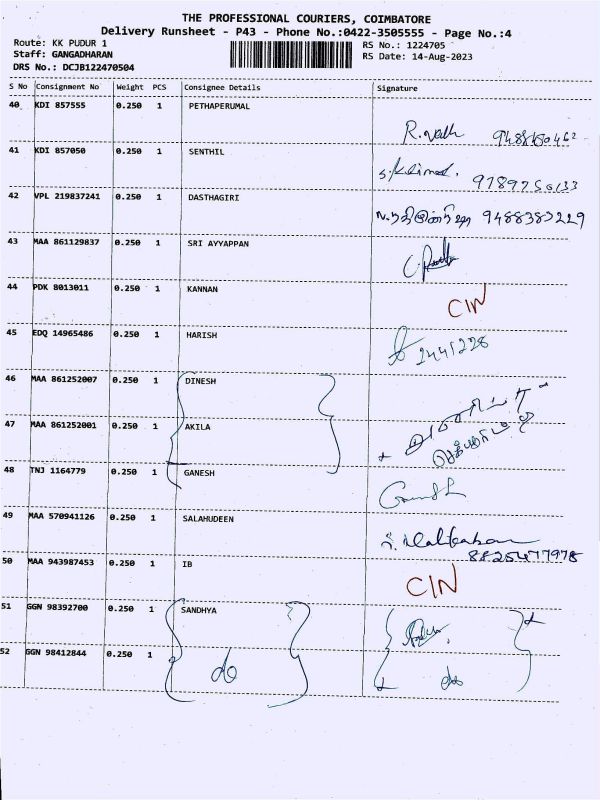 THE PROFESSIONAL COURIERS, COIMBATORE
Delivery Runsheet - P43 - Phone No.:0422-3505555 - Page No.:4
Route: KK PUDUR 1
RS No.: 1224705
Staff: GANGADHARAN
RS Date: 14-Aug-2023
DRS No.: DCJB122470504
S No Consignment No Weight PCS Consignee Details Signature
40 KDI 857555 0.250 1 PETHAPERUMAL
41 KDI 857050 0.250 1 SENTHIL
42 VPL 219837241 0.250 1 DASTHAGIRI
9488383229
43 MAA 861129837 0.250 1 SRI AYYAPPAN
44 PDK 8013011 0.250 1 KANNAN
CIN
45 EDQ 14965486 0.250 1 HARISH
2441228
46 MAA 861252007 0.250 1 DINESH
47 MAA 861252001 0.250 1 AKILA
48 TNJ 1164779 0.250 1 GANESH
49 MAA 570941126 0.250 1 SALAHUDEEN
8825477978
50 MAA 943987453 0.250 1 IB
CIN
51 GGN 98392700 0.250 1 SANDHYA
52 GGN 98412844 0.250 1 do do